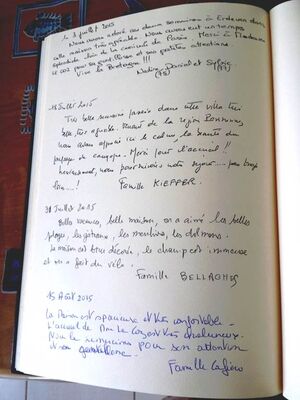 le 3 juillet 2015
Nous avons adoré ces deux semaines à Erdeven dans
cette maison très agréable. Nous avons eu un temps
splendide loin de la canicule de Paris. Merci à Madame
Le Coz pour sa gentillesse et ses petites attentions.
Vive la Bretagne !!!
Nadine, Daniel et Sylvie
18 Juillet 2015
Très belle semaine passée dans cette villa très
bien, très agréable. Venant de la région
nous avons apprécié ici le calme, la beauté du
paysage de campagne. Merci pour l'accueil !!
nous
bien...!
Famille KIEFFER.
31 Juillet 2015
Belles vacances, belle maison, on a aimé les belles
plages, les gâteaux, les menhirs, les dolmens.
La maison est bien décorée, le champ est immense
et on a fait du vélo.
Famille BELLAGHER
15 Août 2015
La maison est spacieuse et très confortable.
L'accueil de Mme Le Coz est très chaleureux.
Nous la remercions pour son attention
et sa gentillesse.
Famille